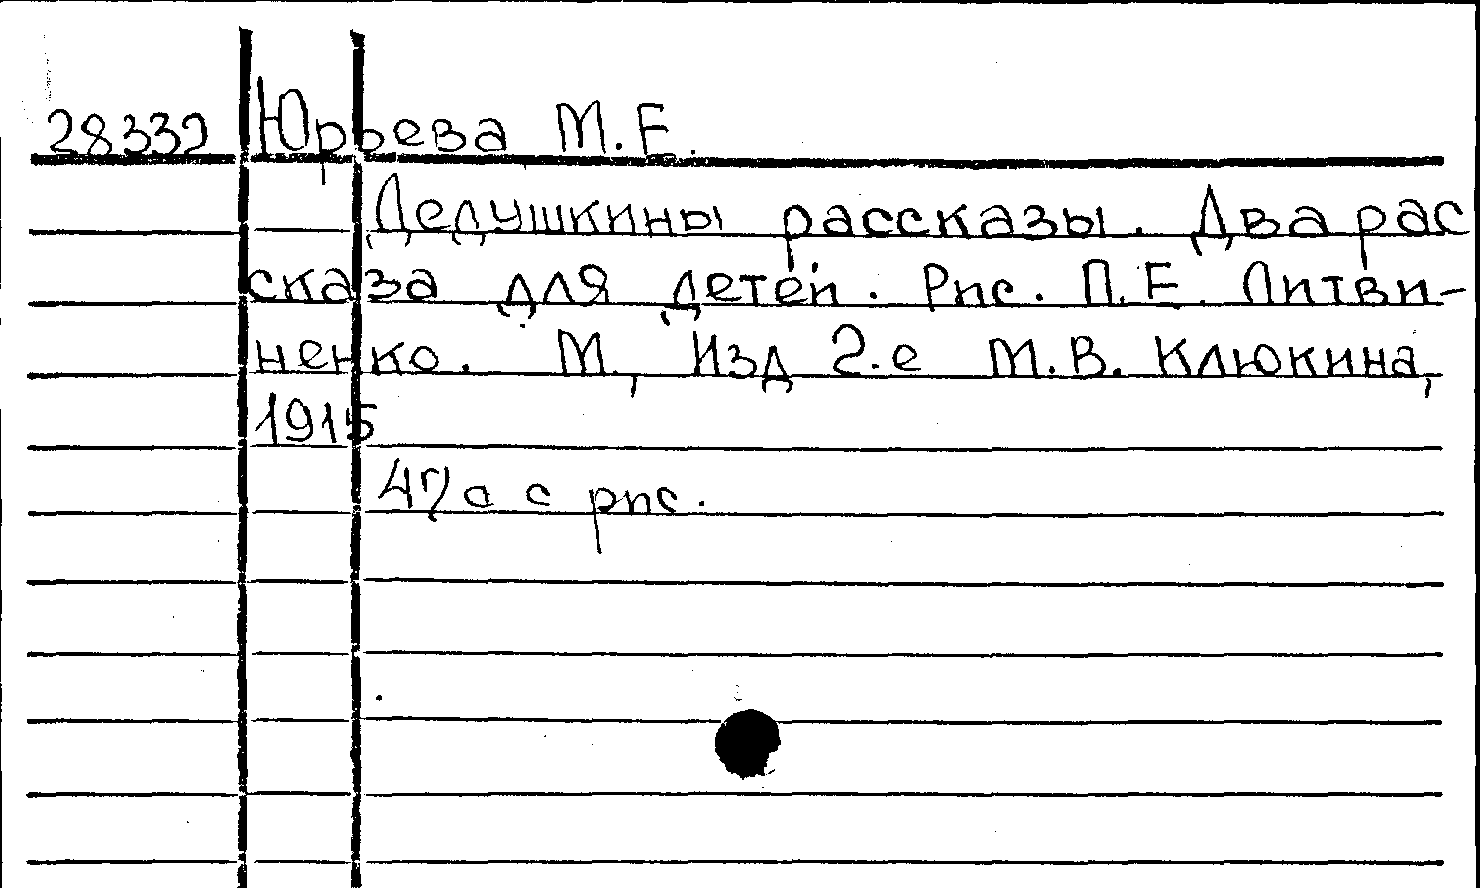 28339 Юрьева М.Е.
Дедушкины рассказы. Два рас
сказа для детей. Рис. П.Е. Литви-
ненко. М., Изд 2-е М.В. Клюкина,
1915
47 с с рис.